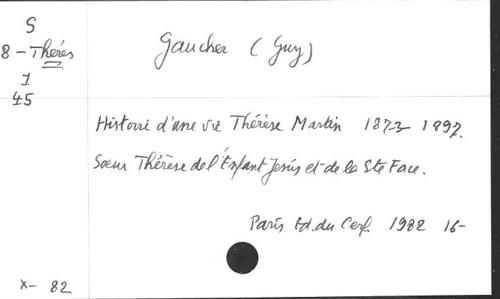 S
8 - Thérés
1
45
Gaucher (Guy)
Histoire d'une vie Thérèse Martin 1873-1897.
Soeur Thérèse de l'Enfant Jesús et de la Ste Face.
Paris Ed. du Cerf. 1982 16-
X- 82